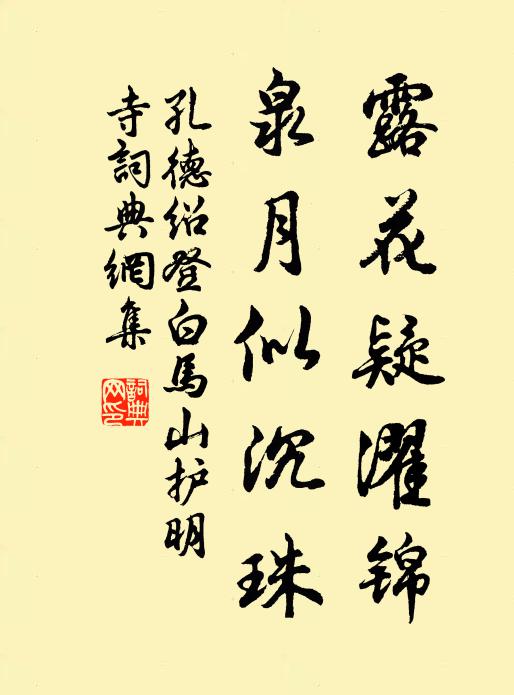 露花疑濯錦
泉月似沉珠
孔德绍登白馬山护明
寺詞典網集
詞典
网印